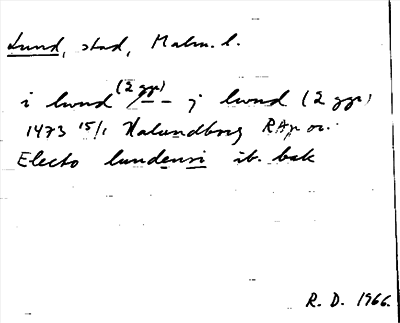 Lund, stad, Malm. l.
i lwnd (2 ggr) / — – j lwnd (2 ggr)
1473 15/1 Kalundborg RAp or.
Electo lundensi ib. bak
R. D. 1966.